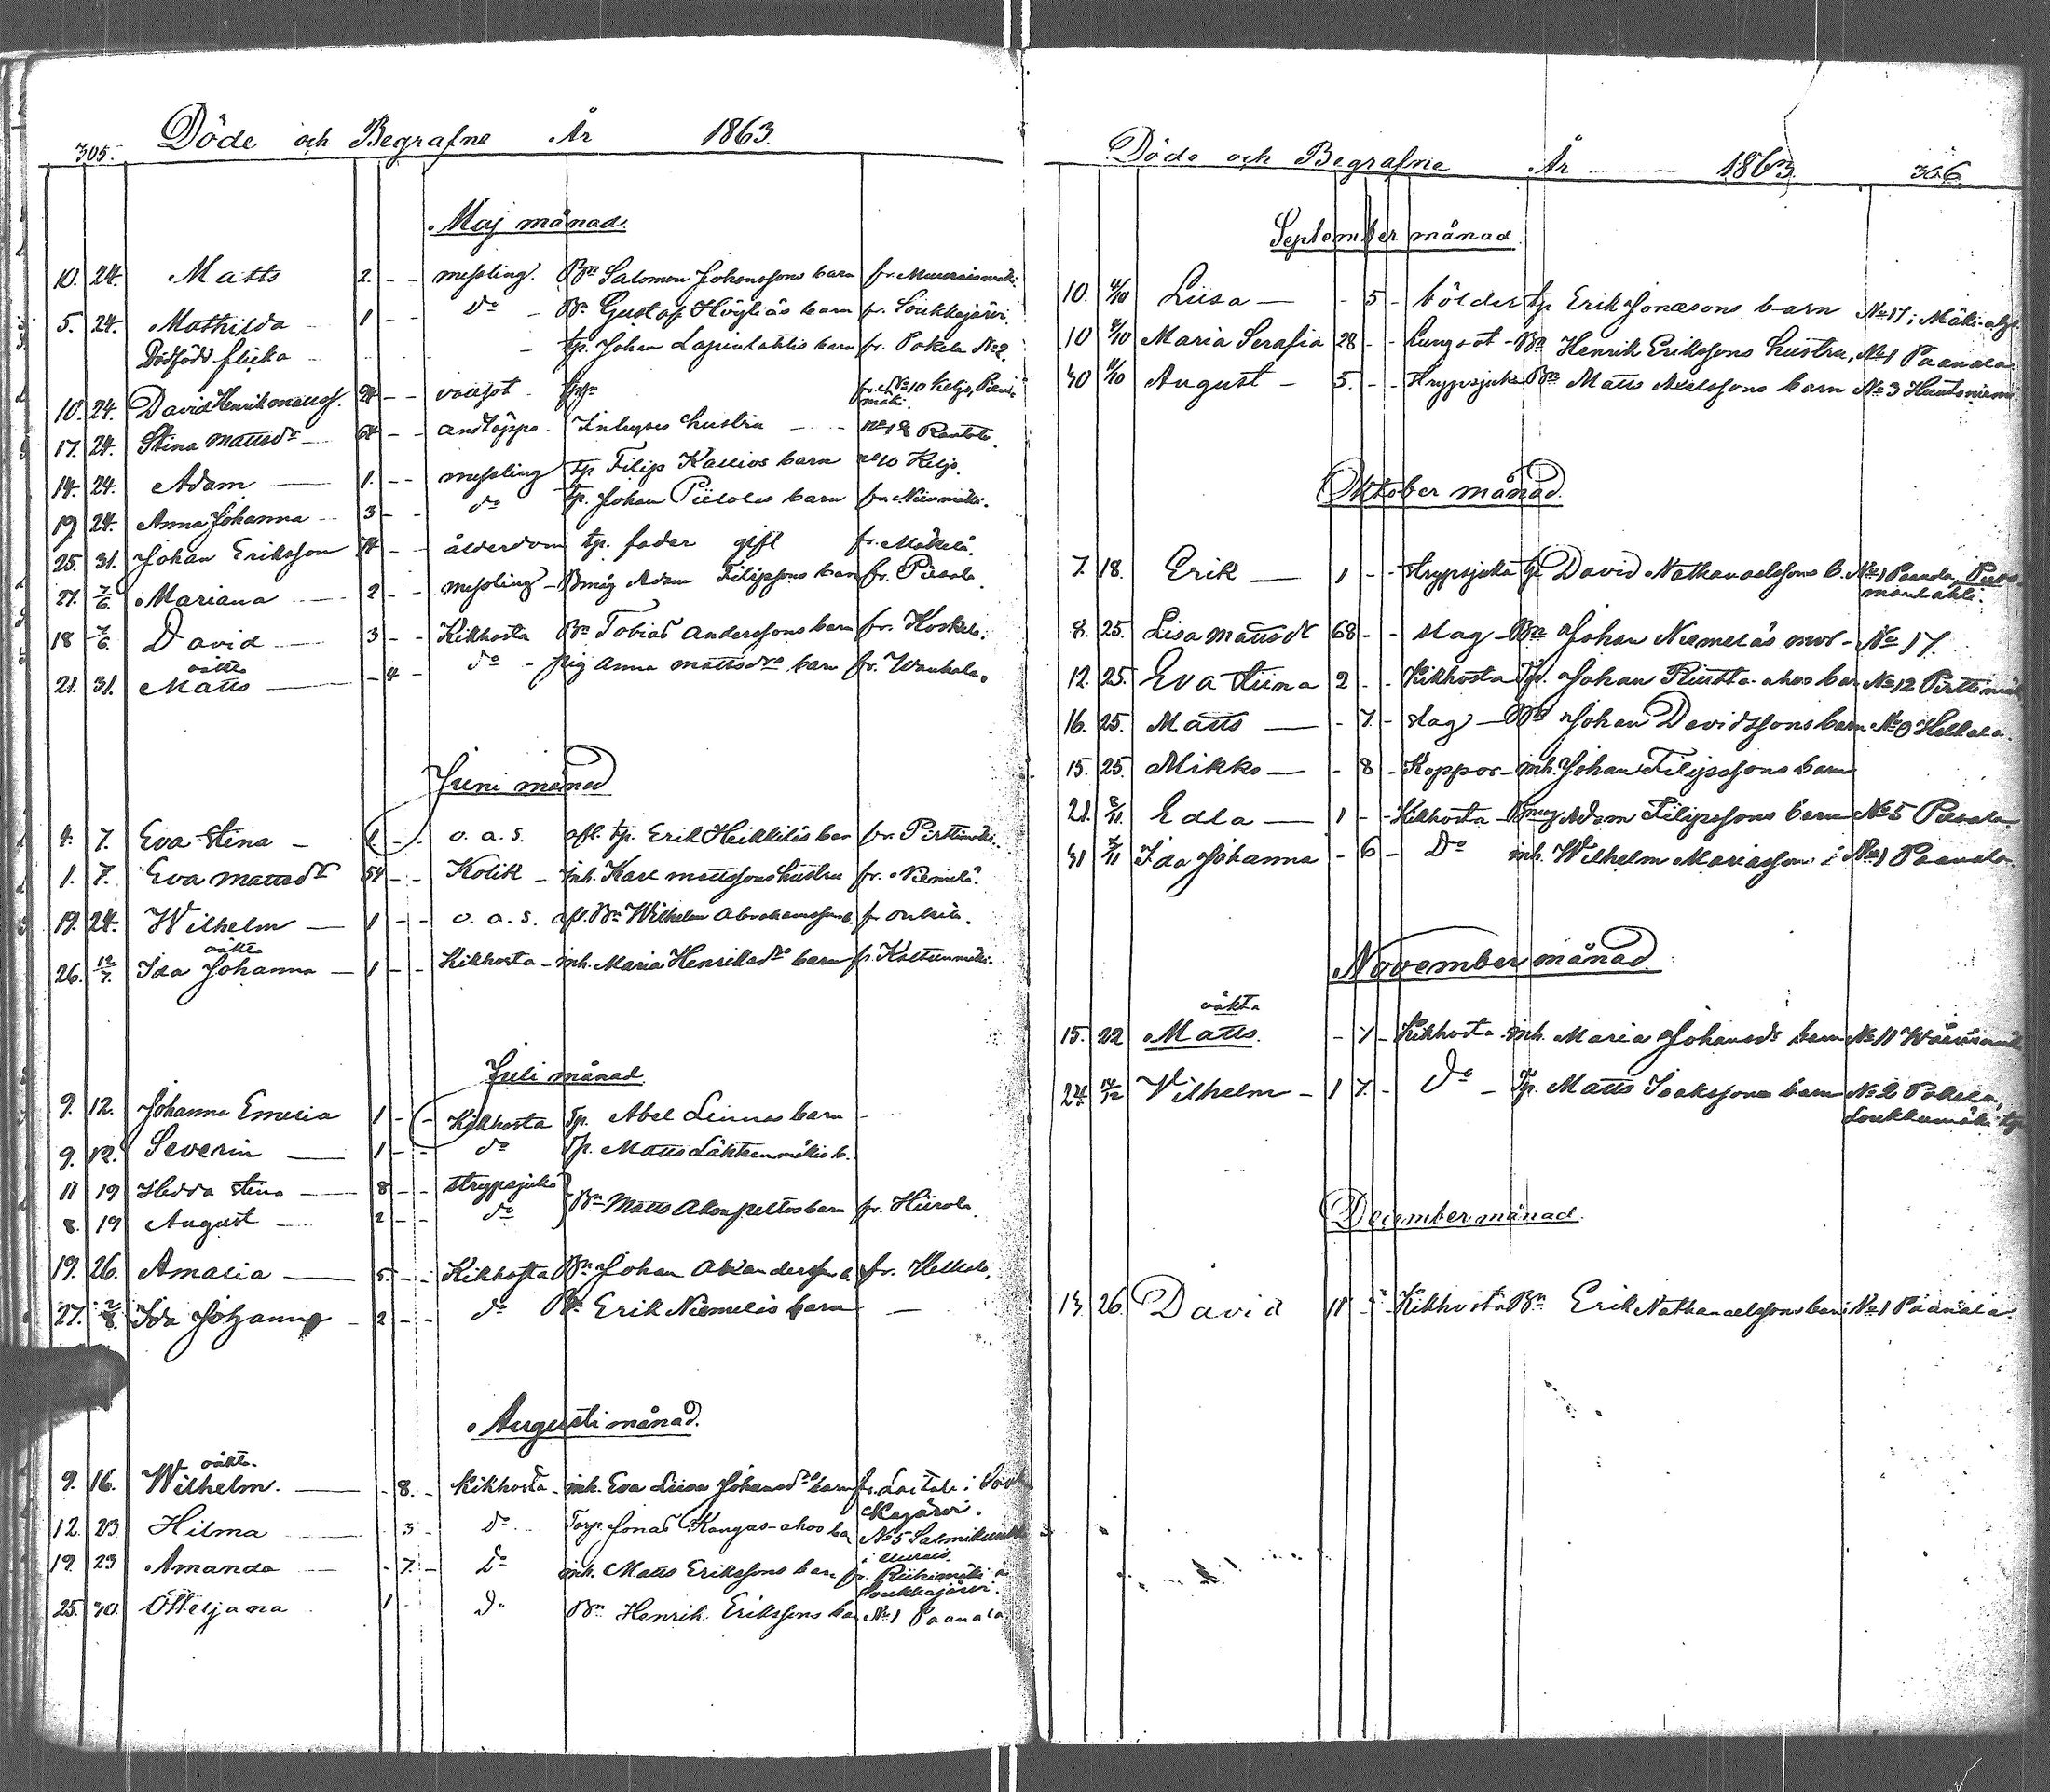 305. Döde och Begrafne År 1863.
Maj månad.
10. 24. Matts 2. - - messling. Bn Salomon Johanssons barn fr.
5. 24. Mathilda 1 - - do - Bn Gustaf Höyliäs barn fr. Soukkajärvi.
Dödfödd flicka - tp. Johan Lapinlahtis barn fr. Pokela No 2
10. 24. David Henrik Mattss. - - fr. No 10 Keljo,
mäki.
17. 24. Stina Mattsdr 64 - - andtäppa. Inhyses hustru No 18
14. 24. Adam 1. - - messling tp Filip Kallios barn No 10 Keljo.
19 24. Anna Johanna 3 - - do tp. Johan Piilolas barn fr. Niinimäki.
25. 31. Johan Eriksson 74 - - ålderdom tp. fader gift fr. Mäkelä.
27. 7/6. Mariana 2 - - messling - Bmåg Adam Filipssons barn fr. Piesala.
18 7/6. David 3 - - Kikhosta Bn Tobias Anderssons barn fr. Koskela.
oäkta
21. 31. Matts - 4 - do - pig Anna Mattsdrs barn fr. Wankala.
Juni månad
4. 7. Eva Stina - 1. - - o. a. s. afl. tp. Erik Heikkiläs bar fr. Pirttimäki.
1. 7. Eva Mattsdr 54 - - Kolik - Inh. Karl Mattssons hustru fr. Niemelä.
19. 24. Wilhelm 1 - - o. a. s. afl. Bn Wilhelm Abrahamssons b. fr Onkila.
oäkta
26. 12/7. Ida Johanna - 1 - - Kikhosta - inh. Maria Henriksdrs barn fr.
Juli månad
9. 12. Johanna Emelia 1 - - Kikhosta Tp. Abel Linnas barn
9. 12. Severin 1 - - do Tp. Matts Lähteenmäkis b.
11 19 Hedda Stina 8 - - strypsjuka Bn Matts Alonpeltos barn fr. Hiirola.
8. 19 August 2 - - do
19. 26. Amalia 5. - - Kikhosta Bn Johan Alexanderssons b. fr. Helkala.
27. 2/8. Ida Johanna - 2 - - do Bn Erik Niemeläs barn -
Augusti månad.
oäkta.
9. 16. Wilhelm. - 8. - Kikhosta - inh. Eva Liisa Johansdrs barn fr. i
kajärvi.
12. 23. Hilma 3 - do Torp. Jonas Kangas-ahos ba No 5
i
19. 23 Amanda - 7. - do inh. Matts Erikssons barn fr. Riihimäki i
Soukkajärvi.
25. 30. Otteljana 1 do Bn Henrik Erikssons ba No 1 Paanala
Döde och Begrafne År 1863. 306
September månad.
10. 4/10 Liisa - - 5 - bölder tp Erik Jonassons barn No 17 i
10 4/10 Maria Serafia 28 - - Lungsot - Bn Henrik Erikssons hustru, No 1 Paanala.
30 11/10 August - 5. - - Strypsjuka Bn Matts Axelssons barn No 3
Oktober månad.
7. 18. Erik - 1 - - Strypsjuka tp David Nathanaelssons b. No 1 Paanala,
8. 25. Lisa Mattsdr 68 - - slag - Bn Johan Niemeläs mor - No 17.
12. 25. Eva Stiina 2 - - Kikhosta Tp. Johan -ahos bar No 12 Pirttimäki
16. 25. Matts - - 7. - slag - Bn Johan Davidssons barn No 9 Helkala.
15. 25. Mikko - - 8 - Koppor - inh. Johan Filipssons barn
21. 8/11. Edla - 1 - - Kikhosta - Bmåg Adam Filipssons barn No 5 Piesala.
31 8/11 Ida Johanna - 6 - Do inh. Wilhelm Mariasson i No 1 Paanala.
November månad
oäkta
15. 22 Matts. - 7 - Kikhosta - inh. Maria Johansdrs barn No 11
24. 12/12 Wilhelm - 1 7. - do - Tp. Matts Isakssons barn No 2 Pokela,
Soukkamäki tp
December månad.
13. 26. David 11 - - Kikhosta Bn Erik Nathanaelssons barn No 1 Paanala.